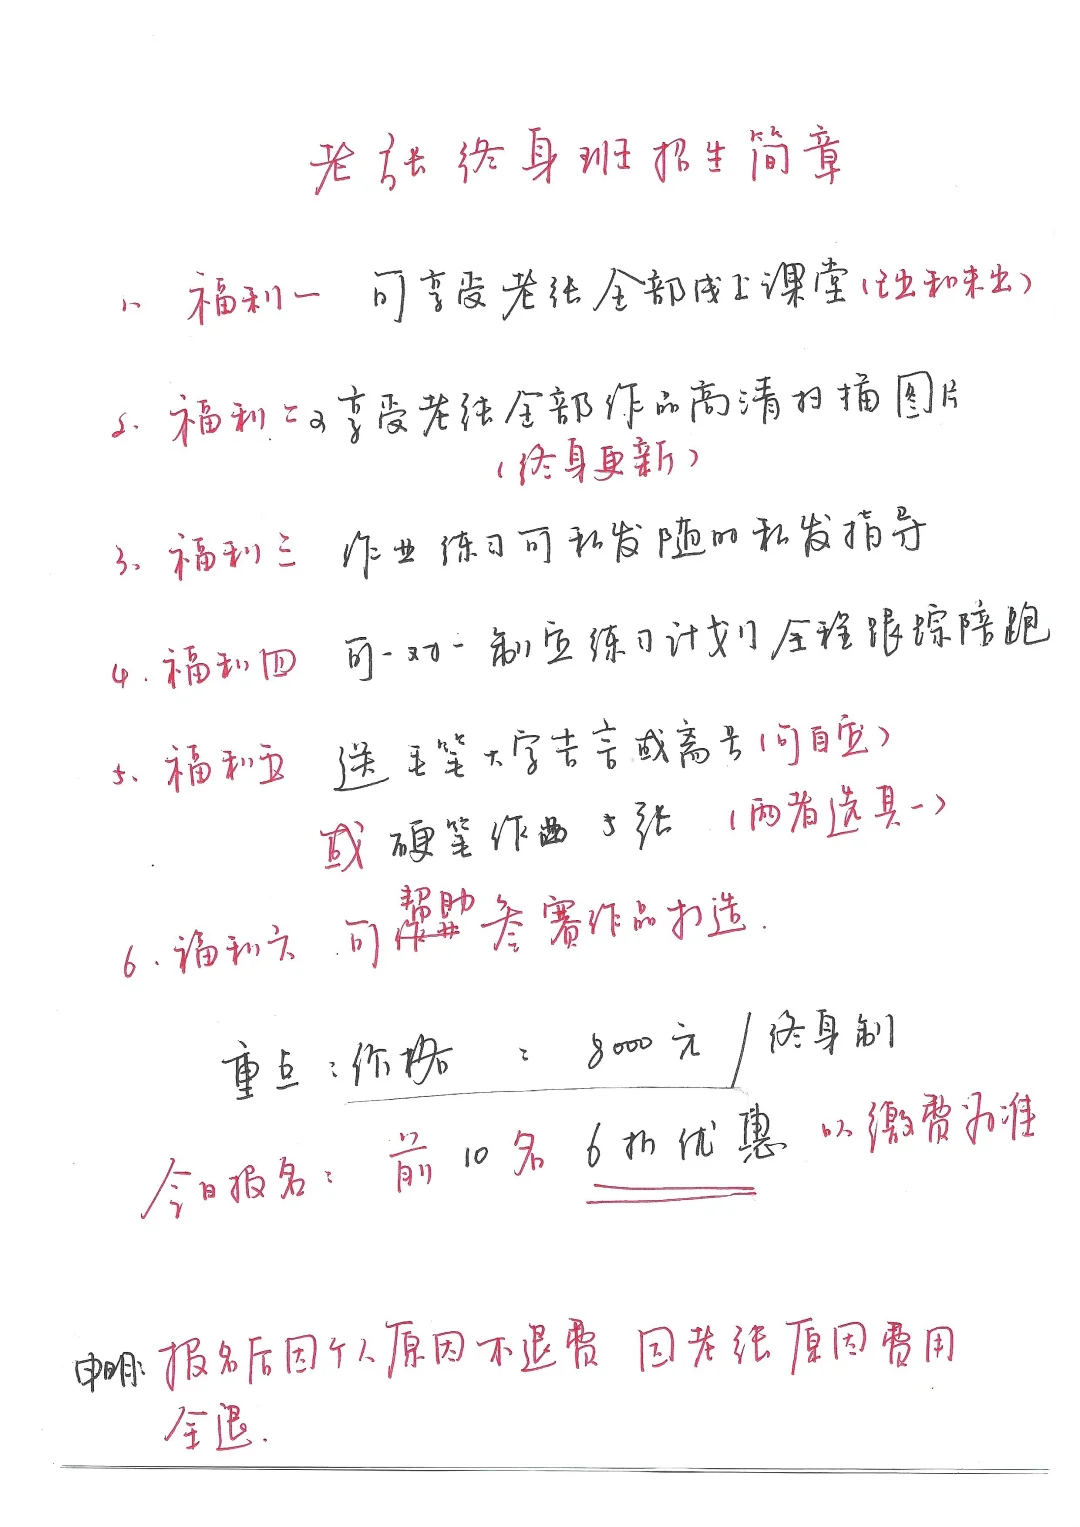 老张终身班招生简章
1、福利一 可享受老张全部线上课堂(已出和未出)
2、福利二 可享受老张全部作品高清扫描图片
(终身更新)
3、福利三 作业练习可私发随时私发指导
4、福利四 可一对一制定练习计划全程跟踪陪跑
5、福利五 送毛笔大字吉言或斋号(可自定)
或硬笔作品5张 (两者选其一)
6、福利六 可帮助参赛作品打造.
重点:价格:8000元/终身制
今日报名:前10名6折优惠 以缴费为准
申明:报名后因个人原因不退费 因老张原因费用
全退.